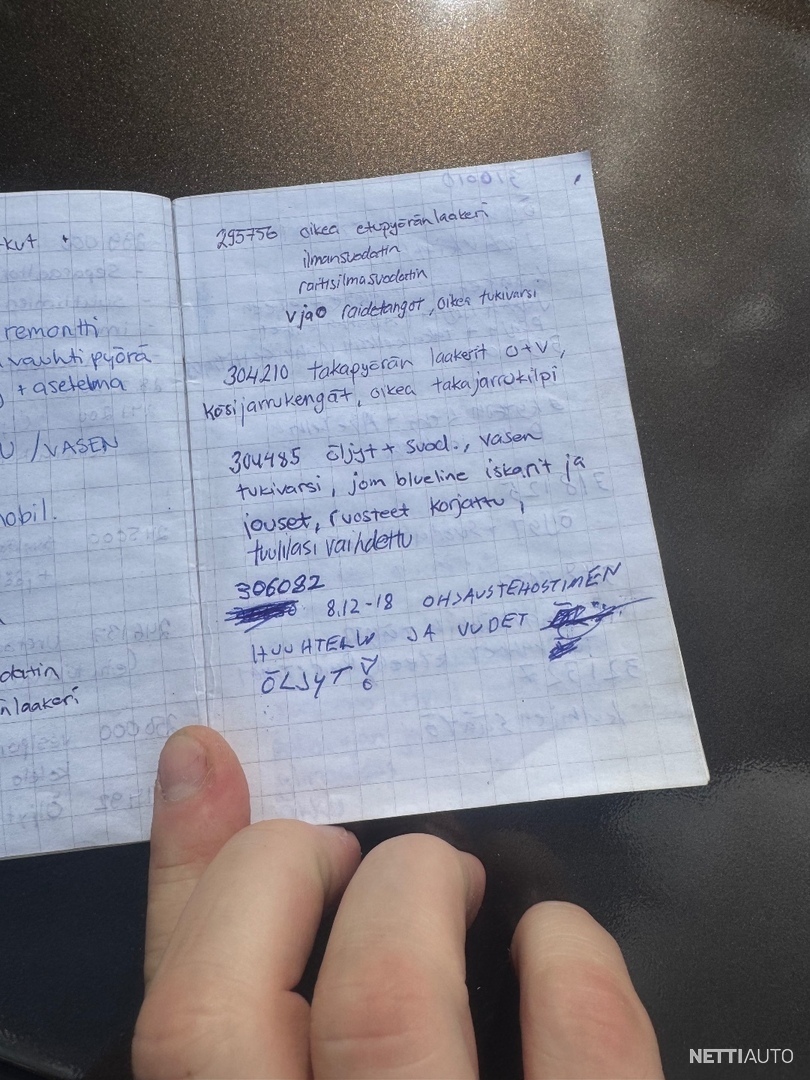 -kut
remontti
vauhtipyörä
+ asetelma
U /VASEN
nobil.
datin
nlaakeri
295756 oikea etupyöränlaakeri
ilmansuodatin
raitisilmasuodatin
vja0 raidetangot, oikea tukivarsi
304210 takapyörän laakerit o+v,
käsijarrukengät, oikea takajarrukilpi
304485 öljyt + suod., vasen
tukivarsi, jom blueline iskarit ja
jouset, ruosteet korjattu,
tuulilasi vaihdettu
306082
8.12-18 OHJAUSTEHOSTIMEN
HUUHTELU JA UUDET
ÖLJYT
NETTIAUTO